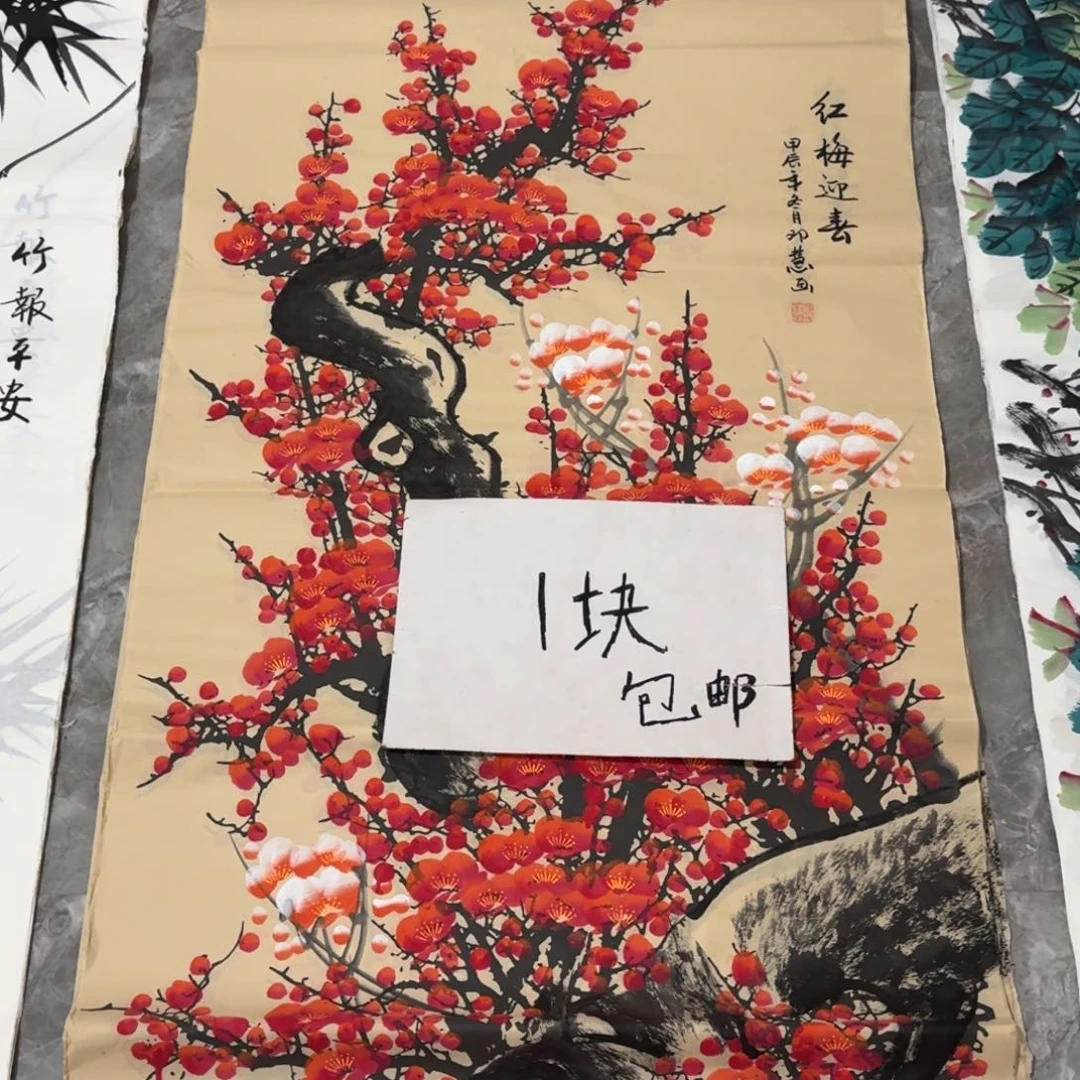 红梅迎春
甲辰年冬月邓慧画
竹報平安
1块
包邮